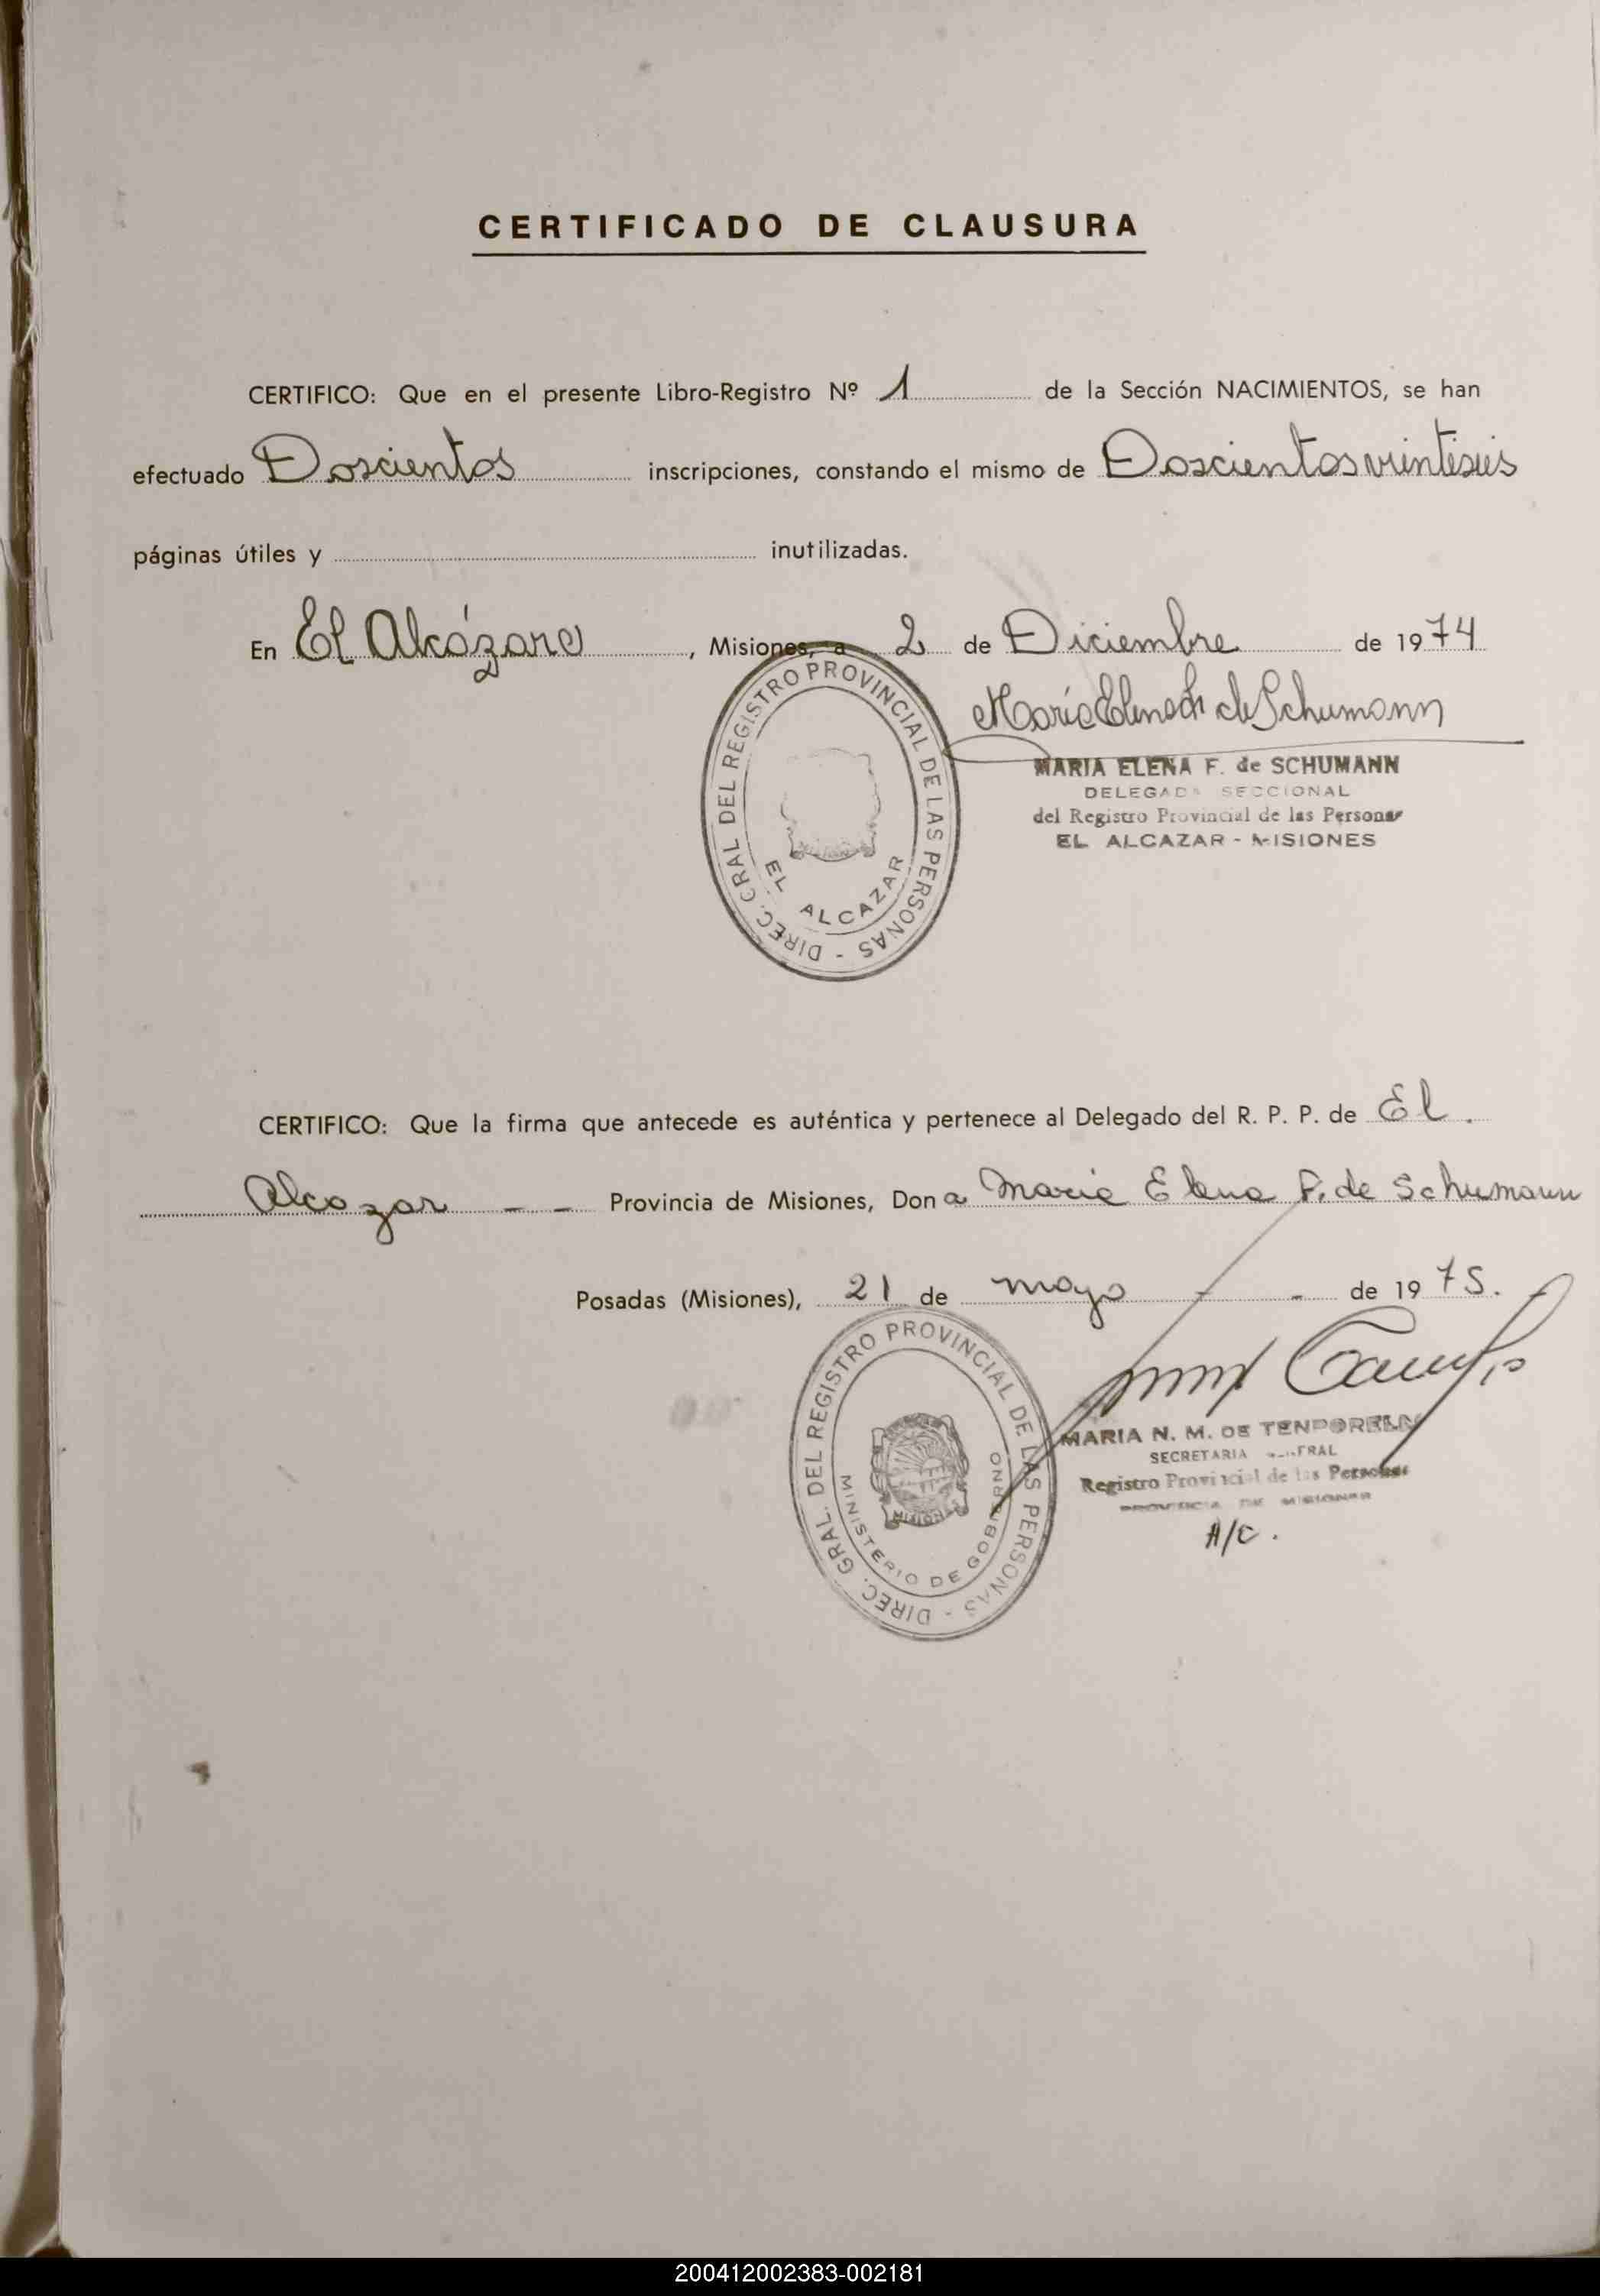 CERTIFICADO DE CLAUSURA
CERTIFICO: Que en el presente Libro-Registro Nº 1 de la Sección NACIMIENTOS, se han
efectuado Doscientos inscripciones, constando el mismo de Doscientos vientiseis
páginas útiles y inutilizadas.
En El Alcázar , Misiones, a 2 de Diciembre de 1974
María Elena F. de Schumann
MARIA ELENA F. de SCHUMANN
DELEGADA SECCIONAL
del Registro Provincial de las Personas
EL ALCAZAR - MISIONES
DIREC. GRAL DEL REGISTRO PROVINCIAL DE LAS PERSONAS -
EL ALCAZAR
CERTIFICO: Que la firma que antecede es auténtica y pertenece al Delegado del R. P. P. de El
Alcazar - - Provincia de Misiones, Don a Maria Elena F. de Schumann
Posadas (Misiones), 21 de mayo - - de 1975.
DIREC. GRAL. DEL REGISTRO PROVINCIAL DE LAS PERSONAS -
MINISTERIO DE GOBIERNO
MISIONES
MARIA N. M. DE
SECRETARIA GENERAL
Registro Provincial de las Personas
PROVINCIA DE MISIONES
A/C.
200412002383-002181